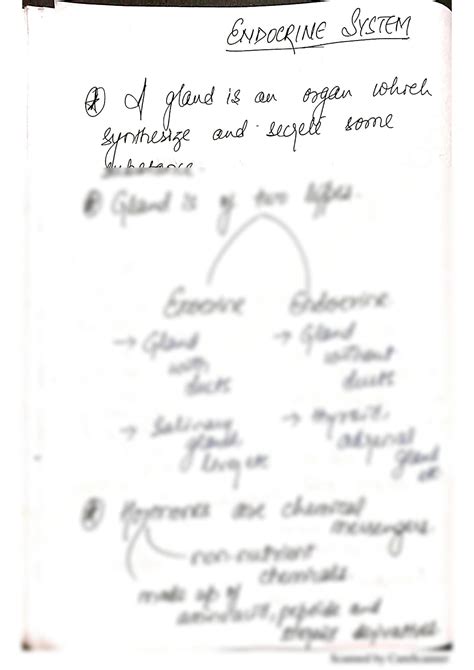 ENDOCRINE SYSTEM
A gland is an organ which
synthesize and secrett some
substance.
Gland is of two types.
Exocrine Endocrine
→ Gland → Gland
with without
ducts ducts
→ Salivary → thyroid,
glands adrenal
gland
etc
Hormones are chemical
messengers.
non-nutrient
chemicals.
made up of
aminoacid, peptide and
derivatives
Scanned by CamScanner